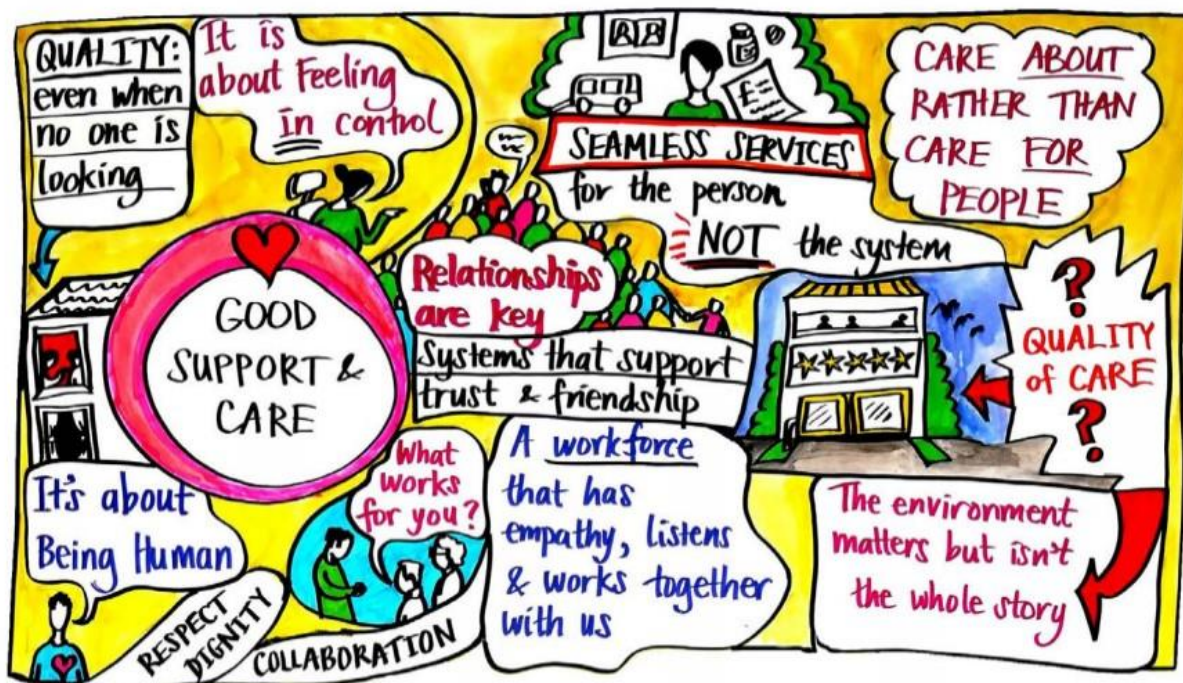 QUALITY:
even when
no one is
looking
It is
about Feeling
in control
SEAMLESS SERVICES
for the person
NOT the system
£
CARE ABOUT
RATHER THAN
CARE FOR
PEOPLE
GOOD
SUPPORT &
CARE
Relationships
are key
Systems that support
trust & friendship
?
QUALITY
of CARE
?
It's about
Being Human
RESPECT
DIGNITY
COLLABORATION
What
works
for you?
A workforce
that has
empathy, listens
& works together
with us
The environment
matters but isn't
the whole story